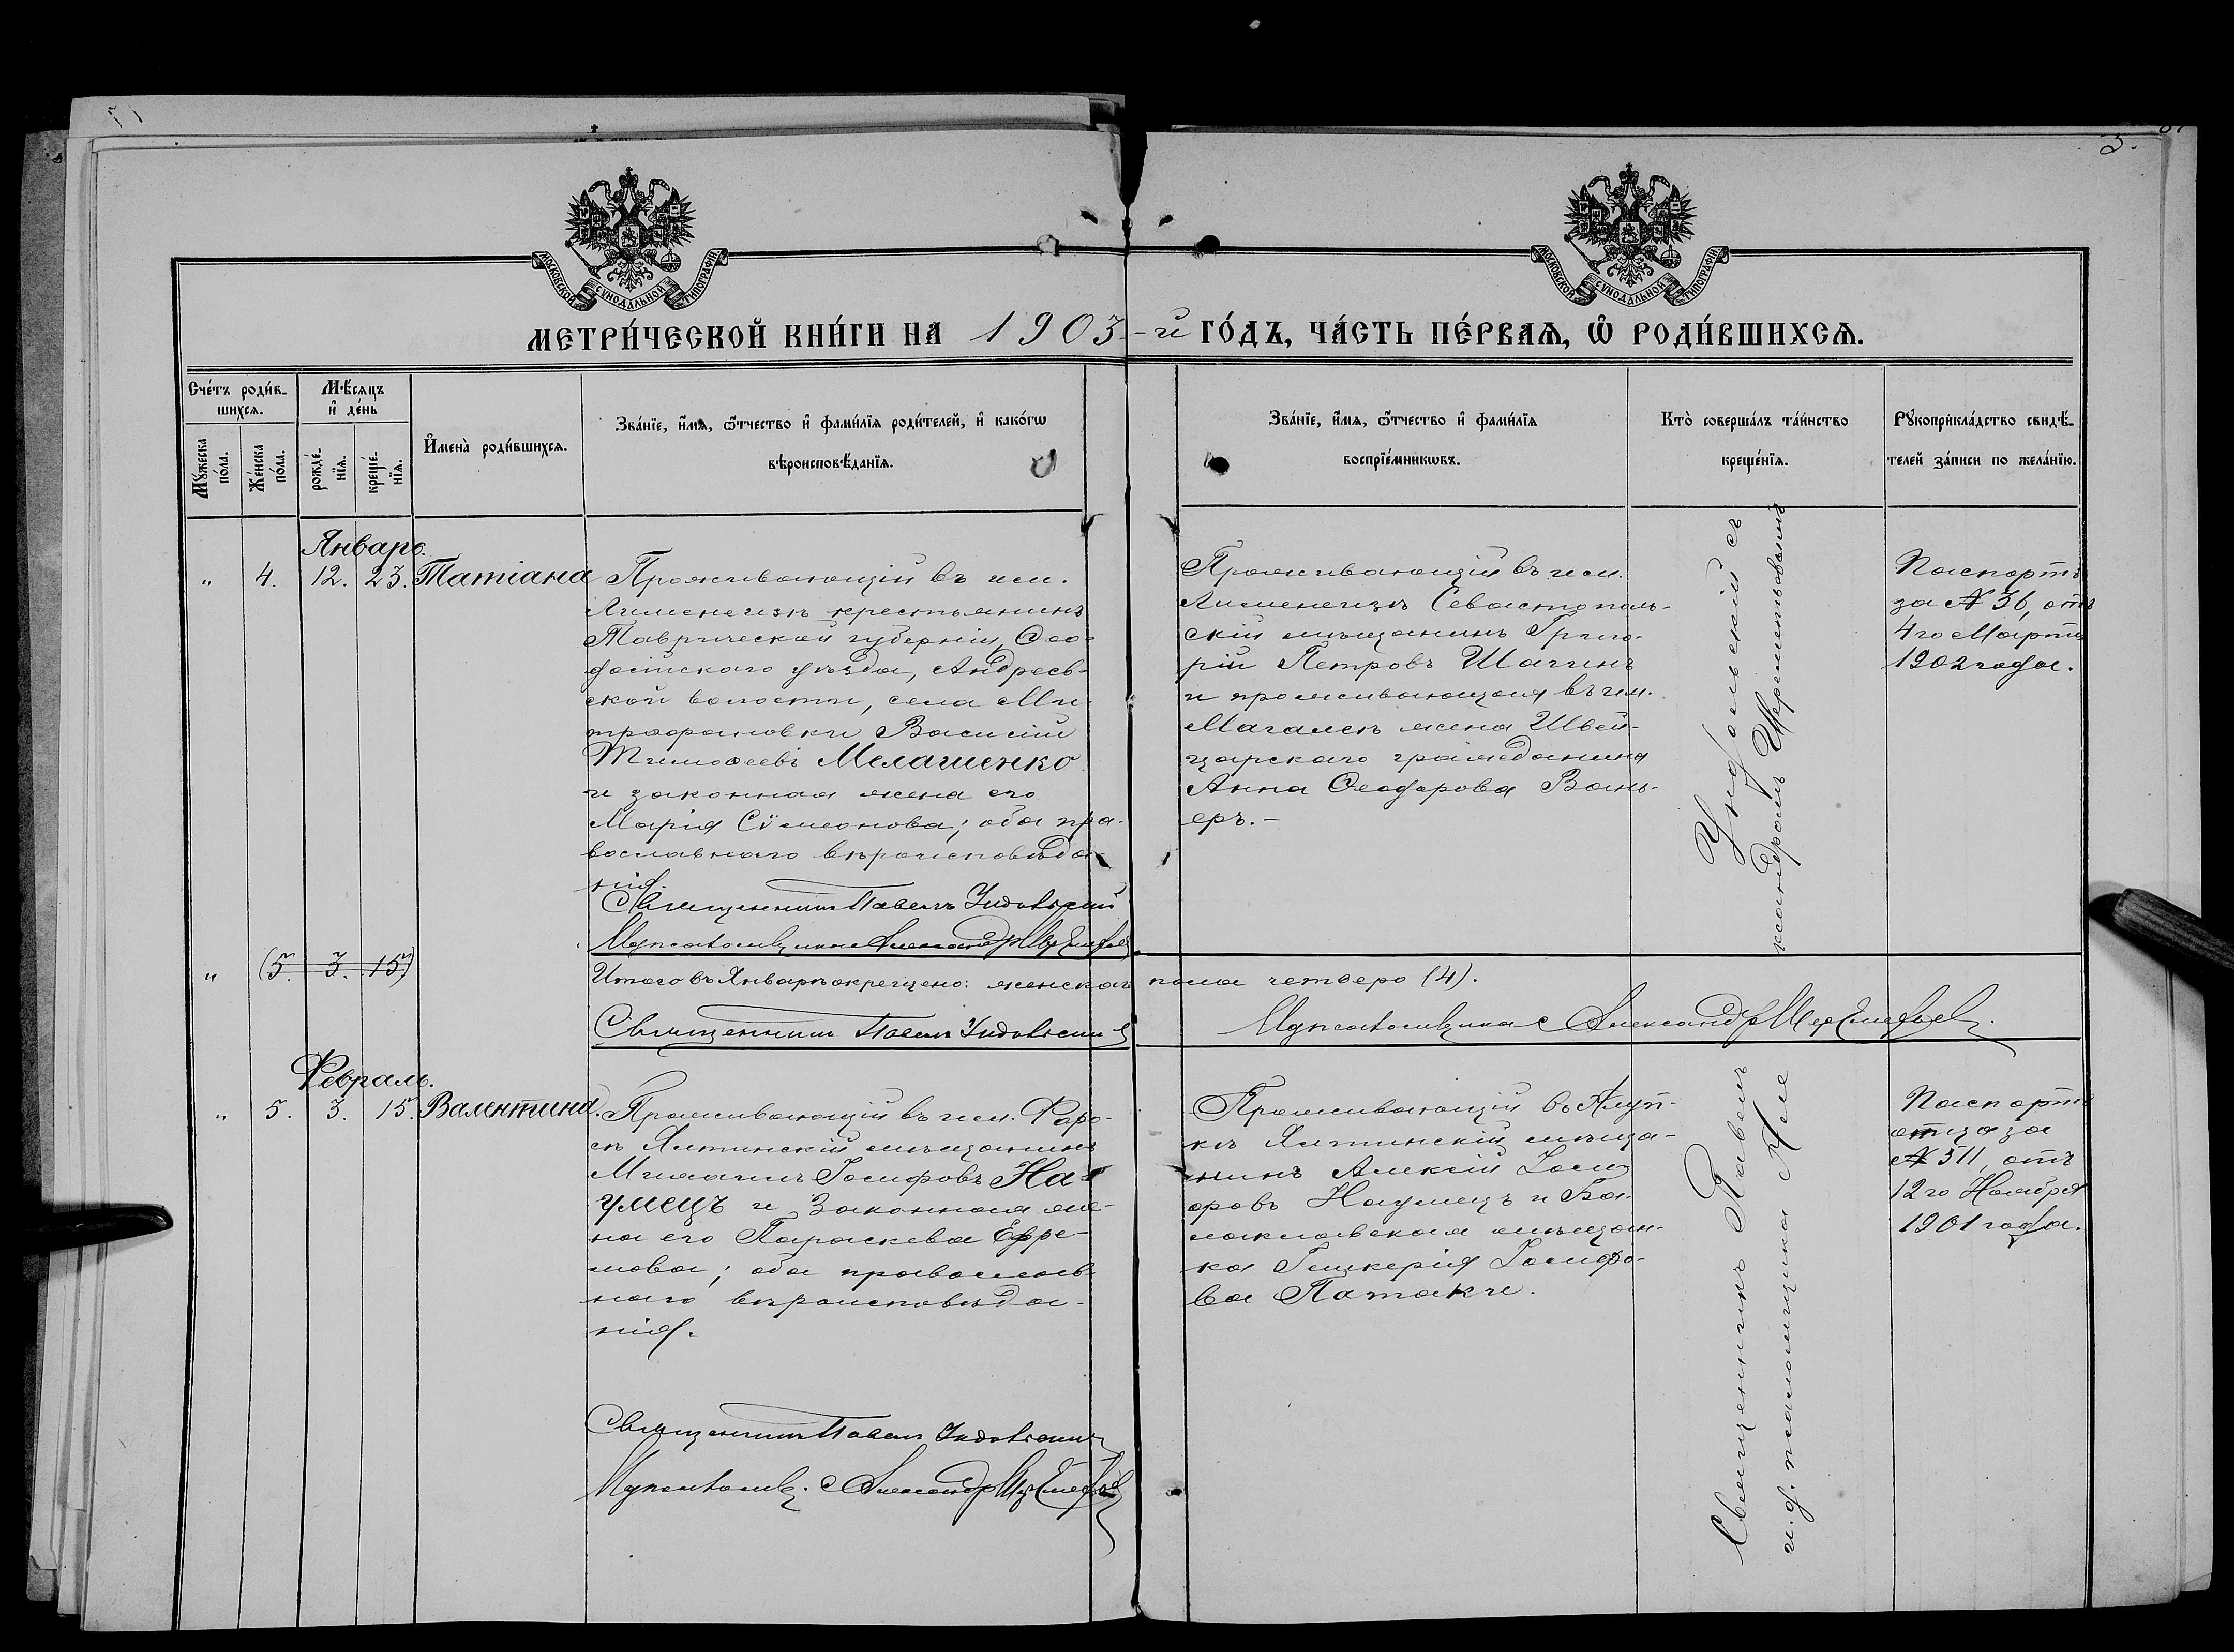 3.
МОСКОВСКОЙ СѴНОДАЛЬНОЙ ТИПОГРАФІИ
МОСКОВСКОЙ СѴНОДАЛЬНОЙ ТИПОГРАФІИ
МЕТРИ́ЧЕСКОЙ КНИ́ГИ НА 1903-й ГО́ДЪ, ЧА́СТЬ ПЕ́РВАѦ, Ѽ РОДИ́ВШИХСѦ.
Сче́тъ роди́в-
шихсѧ.
Мꙋ́жеска
по́ла.
Же́нска
по́ла.
Мѣ́сѧцъ
и҆ де́нь
рожде́-
нїѧ.
креще́-
нїѧ.
И҆мена̀ роди́вшихсѧ.
Зва́нїе, и҆́мѧ, ѻ҆́тчество и҆ фами́лїѧ роди́телей, и҆ како́гѡ
вѣроисповѣ́данїѧ.
Зва́нїе, и҆́мѧ, ѻ҆́тчество и҆ фами́лїѧ
воспрїе́мникѡвъ.
Кто̀ соверша́лъ та́инство
креще́нїѧ.
Рꙋкоприкла́дство свидѣ́-
телей за́писи по жела́нїю.
Январь.
" 4. 12. 23. Татіана
Проживающій въ им.
Лименеизъ крестьянинъ
Таврической губерніи, Ѳео-
досійскаго уѣзда, Андреев-
ской волости, села Ми-
трофановки Василій
Тимоѳеевъ Мелашенко
и законная жена его
Марія Сѵмеонова; оба пра-
вославнаго вѣроисповѣда-
нія.
Священникъ Павелъ Ундольскій
Псаломщикъ Александр
Проживающій въ им.
Лименеизъ Севастополь-
скій мѣщанинъ Григо-
рій Петровъ Шагинъ
и проживающая въ им.
жена Швей-
царскаго гражданина
Анна Ѳеодорова
еръ.-
Ундольскій съ
ксандромъ
Паспортъ
за № 36, отъ
4го Марта
1902 года.
" (5. 3. 15)
Итого въ Январѣ окрещено: женскаго пола четверо (4).
Священникъ Павелъ Ундольскій
Александр
Февраль.
" 5. 3. 15. Валентина.
Проживающій въ им. Форо-
съ Ялтинскій мѣщанинъ
Михаилъ Іосифовъ На-
умецъ и законная же-
на его Параскева Ефре-
мова; оба православ-
наго вѣроисповѣда-
нія.
Священникъ Павелъ Ундольскій
Александр
Проживающій въ Алуп-
кѣ Ялтинскій мѣща-
нинъ Алексій Іоси-
фовъ Наумецъ и Ба-
лаклавская мѣщан-
ка Гликерія Іосифо-
ва Патаки.
Священникъ Павелъ
и. д. псаломщика Але
Паспортъ
отца за
№ 511, отъ
12го Ноября
1901 года.